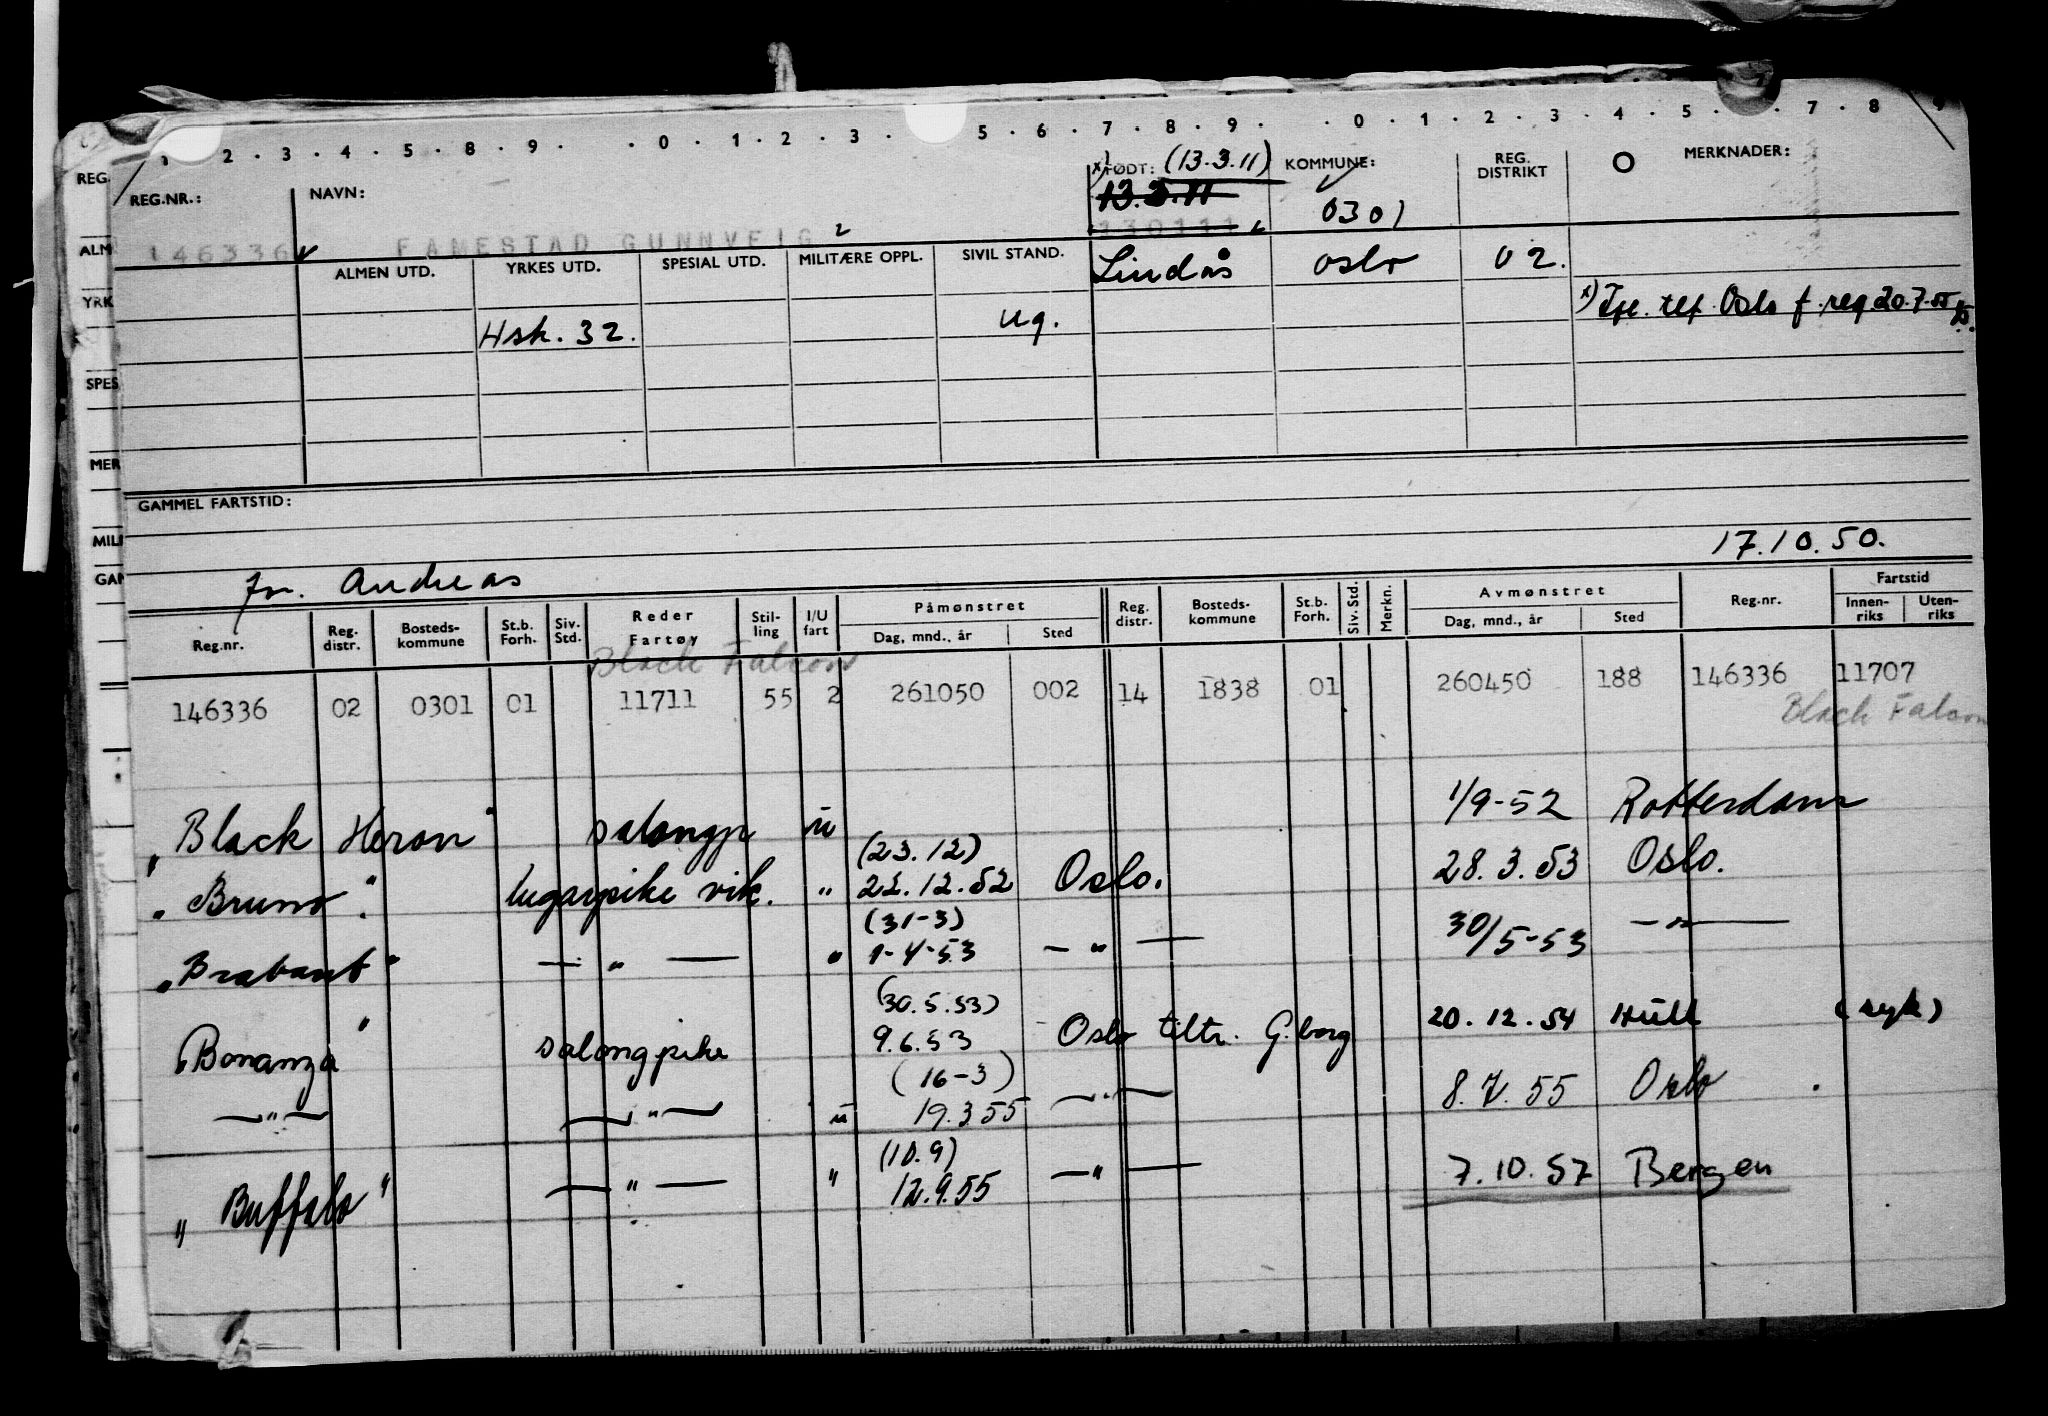 1 2 . 3 . 4 . 5 . 8 . 9 . . 0 . 1 . 2 . 3 . 5 . 6 . 7 . 8 . 9 . . 0 . 1 . 2 . 3 . 4 . 5 . . 7 . 8 9
REG.NR.: NAVN: x) FØDT: (13.3.11) KOMMUNE: REG. DISTRIKT O MERKNADER:
13.3.11
146336 FAMESTAD GUNNVEIG 2 130111 0301
ALMEN UTD. YRKES UTD. SPESIAL UTD. MILITÆRE OPPL. SIVIL STAND. Lindås Oslo 02.
Hsk. 32. ug. x) Tfe. tlf. Oslo f. reg. 20.7.55
GAMMEL FARTSTID:
17.10.50.
fn. Andreas
Reg.nr. Reg. distr. Bosteds-kommune St.b. Forh. Siv. Std. Reder Fartøy Stil-ling I/U fart Påmønstret Dag, mnd., år Sted Reg. distr. Bosteds-kommune St.b. Forh. Siv. Std. Merkn. Avmønstret Dag, mnd., år Sted Reg.nr. Fartstid Innen-riks Uten-riks
Black Falcon
146336 02 0301 01 11711 55 2 261050 002 14 1838 01 260450 188 146336 11707
Black Falcon
"Black Heron" salongp ü 1/9-52 Rotterdam
(23.12)
"Bruno". lugarpike vik. " 22.12.52 Oslo. 28.3.53 Oslo.
(31-3)
"Brabant" — " — " 1-4-53 — " — 30/5-53 — " —
(30.5.53)
"Bonanza" salongpike 9.6.53 Oslo tiltr. G.borg 20.12.54 Hull (syk)
(16-3)
— " — — " — ü 19.3.55 — " — 8.7.55 Oslo
(10.9)
"Buffalo" — " — " 12.9.55 — " — 7.10.57 Bergen
REG.
ALM
YRK
SPES
MER
MILI
GAN